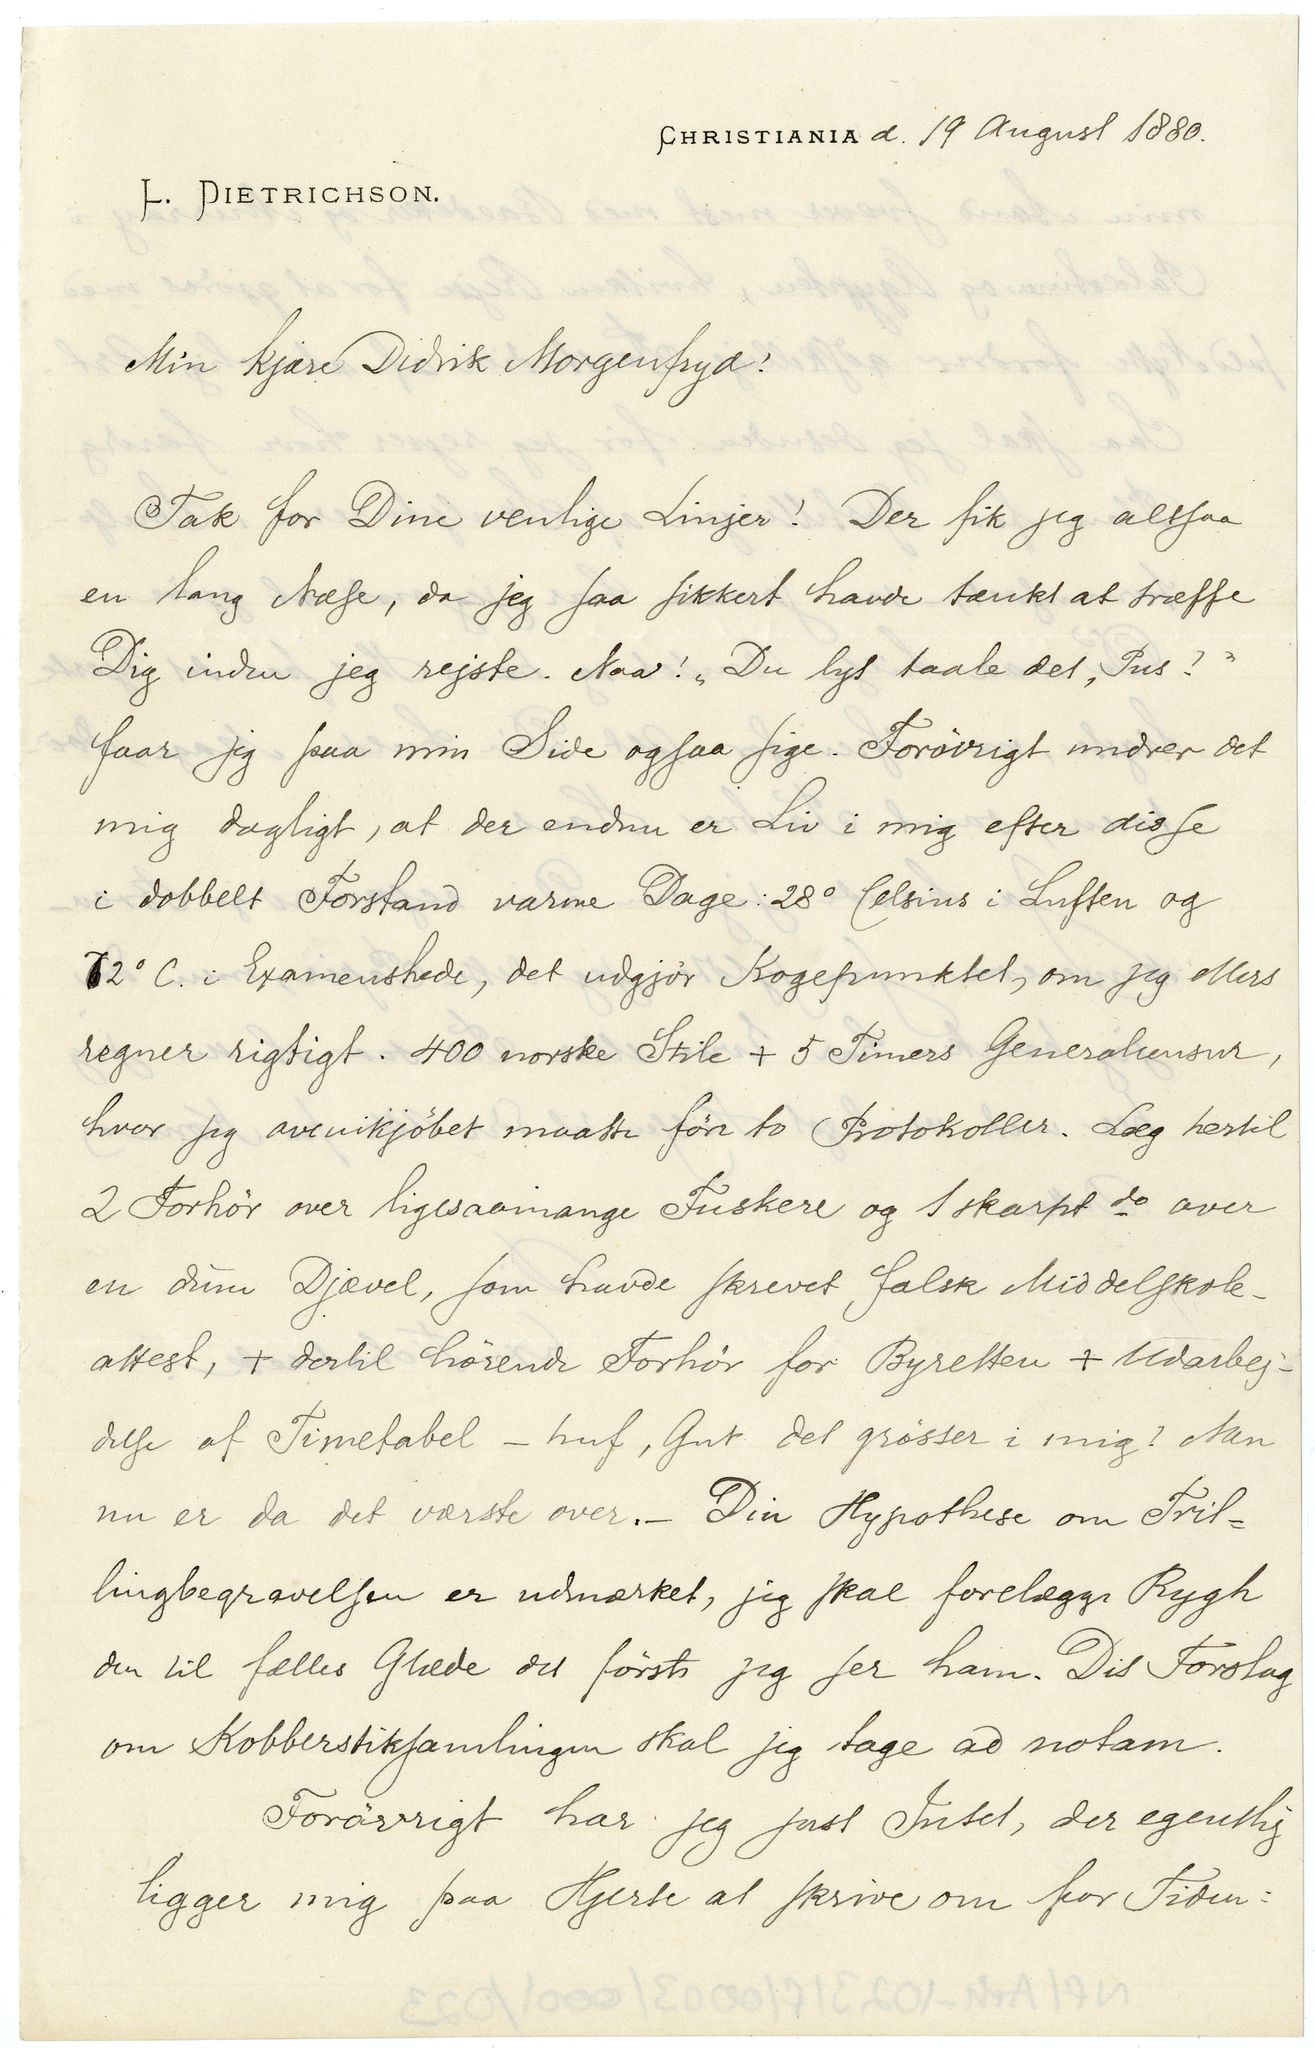 CHRISTIANIA d. 19 August 1880.
L. DIETRICHSON.
Min kjære Didrik Morgenfryd!
Tak for Dine venlige Linjer! Der fik jeg altsaa
en lang Næse, da jeg saa sikkert havde tænkt at træffe
Dig inden jeg rejste. Naa! „Du lyt taale det, Pus!"
faar jeg paa min Side ogsaa sige. Forövrigt undrer det
mig dagligt, at der endnu er Liv i mig efter disse
i dobbelt Forstand varme Dage: 28° Celsius i Luften og
72° C. i Examenshede, det udgjör Kogepunktet, om jeg ellers
regner rigtigt. 400 norske Stile + 5 Timers Generalcensur,
hvor jeg ovenikjöbet maatte före to Protokoller. Læg hertil
2 Forhör over ligesaamange Fuskere og 1 skarpt do over
en dum Djævel, som havde skrevet falsk Middelskole-
attest, + dertil hörende Forhör for Byretten + Udarbej-
delse af Timetabel – huf, Gut det grösser i mig! Men
nu er da det værste over. – Din Hypothese om Tril-
lingbegravelsen er udmærket, jeg skal forelægge Rygh
den til fælles Glæde det förste jeg ser ham. Dit Forslag
om Kobberstiksamlingen skal jeg tage ad notam.
Forövrigt har jeg just Intet, der egentlig
ligger mig paa Hjerte at skrive om for Tiden: